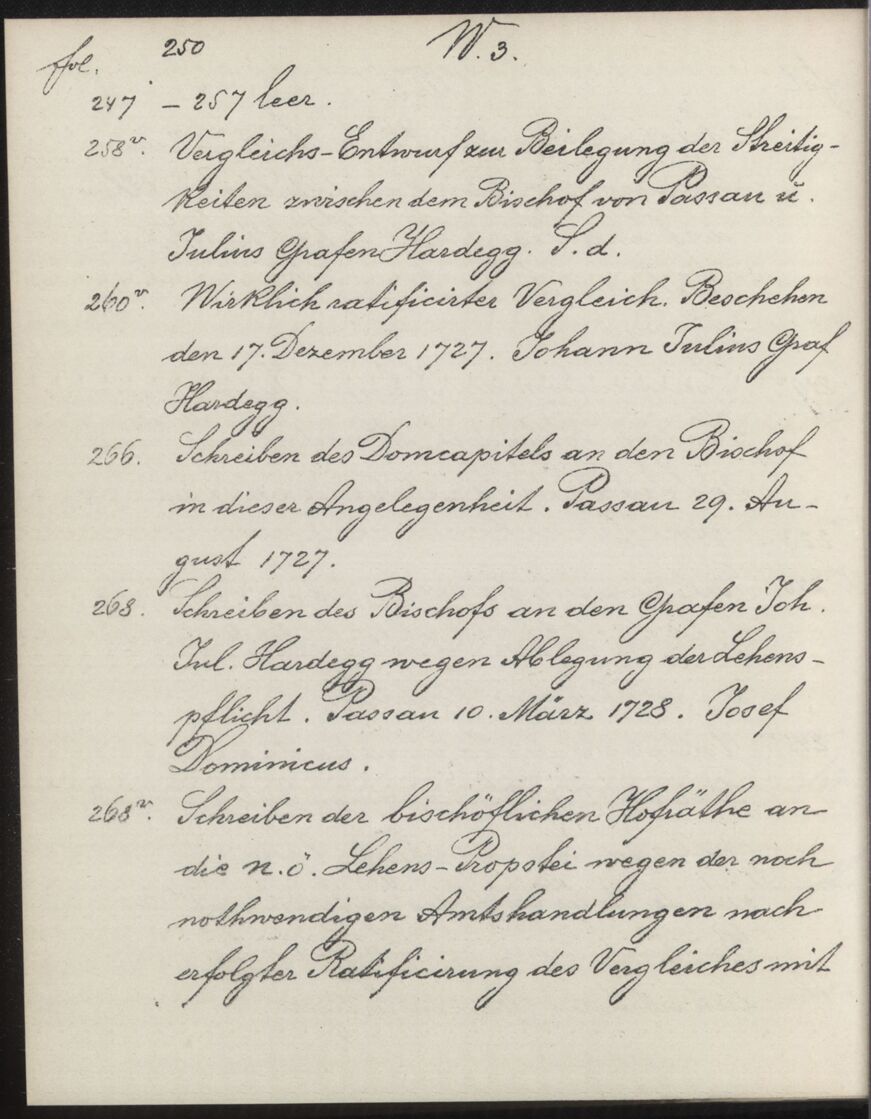 250 W. 3.
ffol.
247 – 257 leer.
258v. Vergleichs-Entwurf zur Beilegung der Streitig-
keiten zwischen dem Bischof von Passau u.
Julius Grafen Hardegg. S. d.
260v. Wirklich ratificirter Vergleich. Beschehen
den 17. Dezember 1727. Johann Julius Graf
Hardegg.
266. Schreiben des Domcapitels an den Bischof
in dieser Angelegenheit. Passau 29. Au-
gust 1727.
268. Schreiben des Bischofs an den Grafen Joh.
Jul. Hardegg wegen Ablegung der Lehens-
pflicht. Passau 10. März 1728. Josef
Dominicus.
268v. Schreiben der bischöflichen Hofräthe an
die n. ö. Lehens-Propstei wegen der noch
nothwendigen Amtshandlungen nach
erfolgter Ratificirung des Vergleiches mit